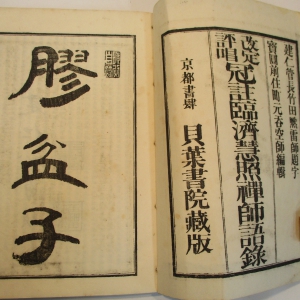 建仁管長竹田黙雷師題字
寶圓前住元呑空師編輯
改定
評唱
冠註臨濟慧照禪師語錄
京都書肆 貝葉書院藏版
膠盆子